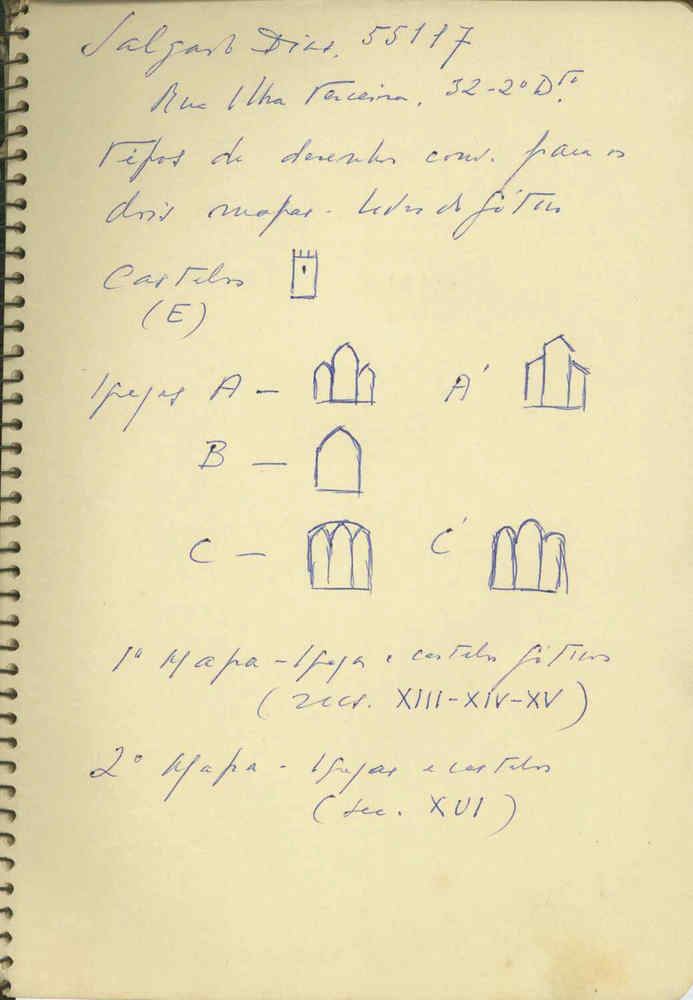 Salgado Dias, 55117
Rua Ilha Terceira, 32-2º Dto.
Tipos de desenho conv. para os
dois mapas - do Gótico
Castelos
(E)
Igrejas A - A'
B -
C - C'
1º Mapa - Igrejas e castelos góticos
(secs. XIII-XIV-XV)
2º Mapa - Igrejas e castelos
(sec. XVI)